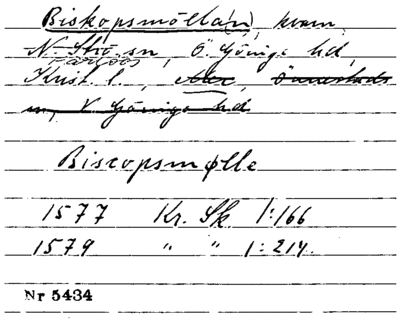 Biskopsmölla(n), kvarn,
N. Strö sn, Ö. Göinge hd,
Färlövs
Krist. l., Akr, Önnestads
sn, V. Göinge hd
Biscopsmølle
1577 Kr. Sk 1:166
1579 " " 1:214.
Nr 5434